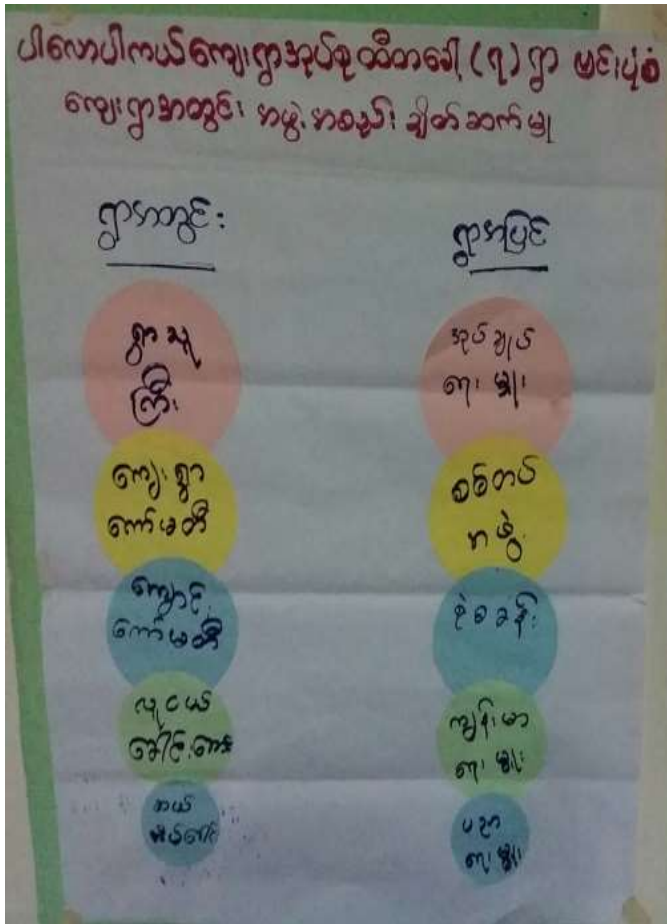 ပါလောပါကယ်ကျေးရွာအုပ်စု ထီတခေါ့ (၇) ရွာ မြင်းပုံစံ
ကျေးရွာအတွင်း အဖွဲ့အစည်း ချိတ်ဆက်မှု
ရွာအတွင်း
ရွာသူ
ကြီး
ကျေးရွာ
ကော်မတီ
ကျောင်း
ကော်မတီ
လူငယ်
ခေါင်းဆောင်
ဆယ်
အိမ်ခေါင်း
ရွာအပြင်
အုပ်ချုပ်
ရေးမှူး
စစ်တပ်
အဖွဲ့
စုံစခန်း
ကျန်းမာ
ရေးမှူး
ပညာ
ရေးမှူး